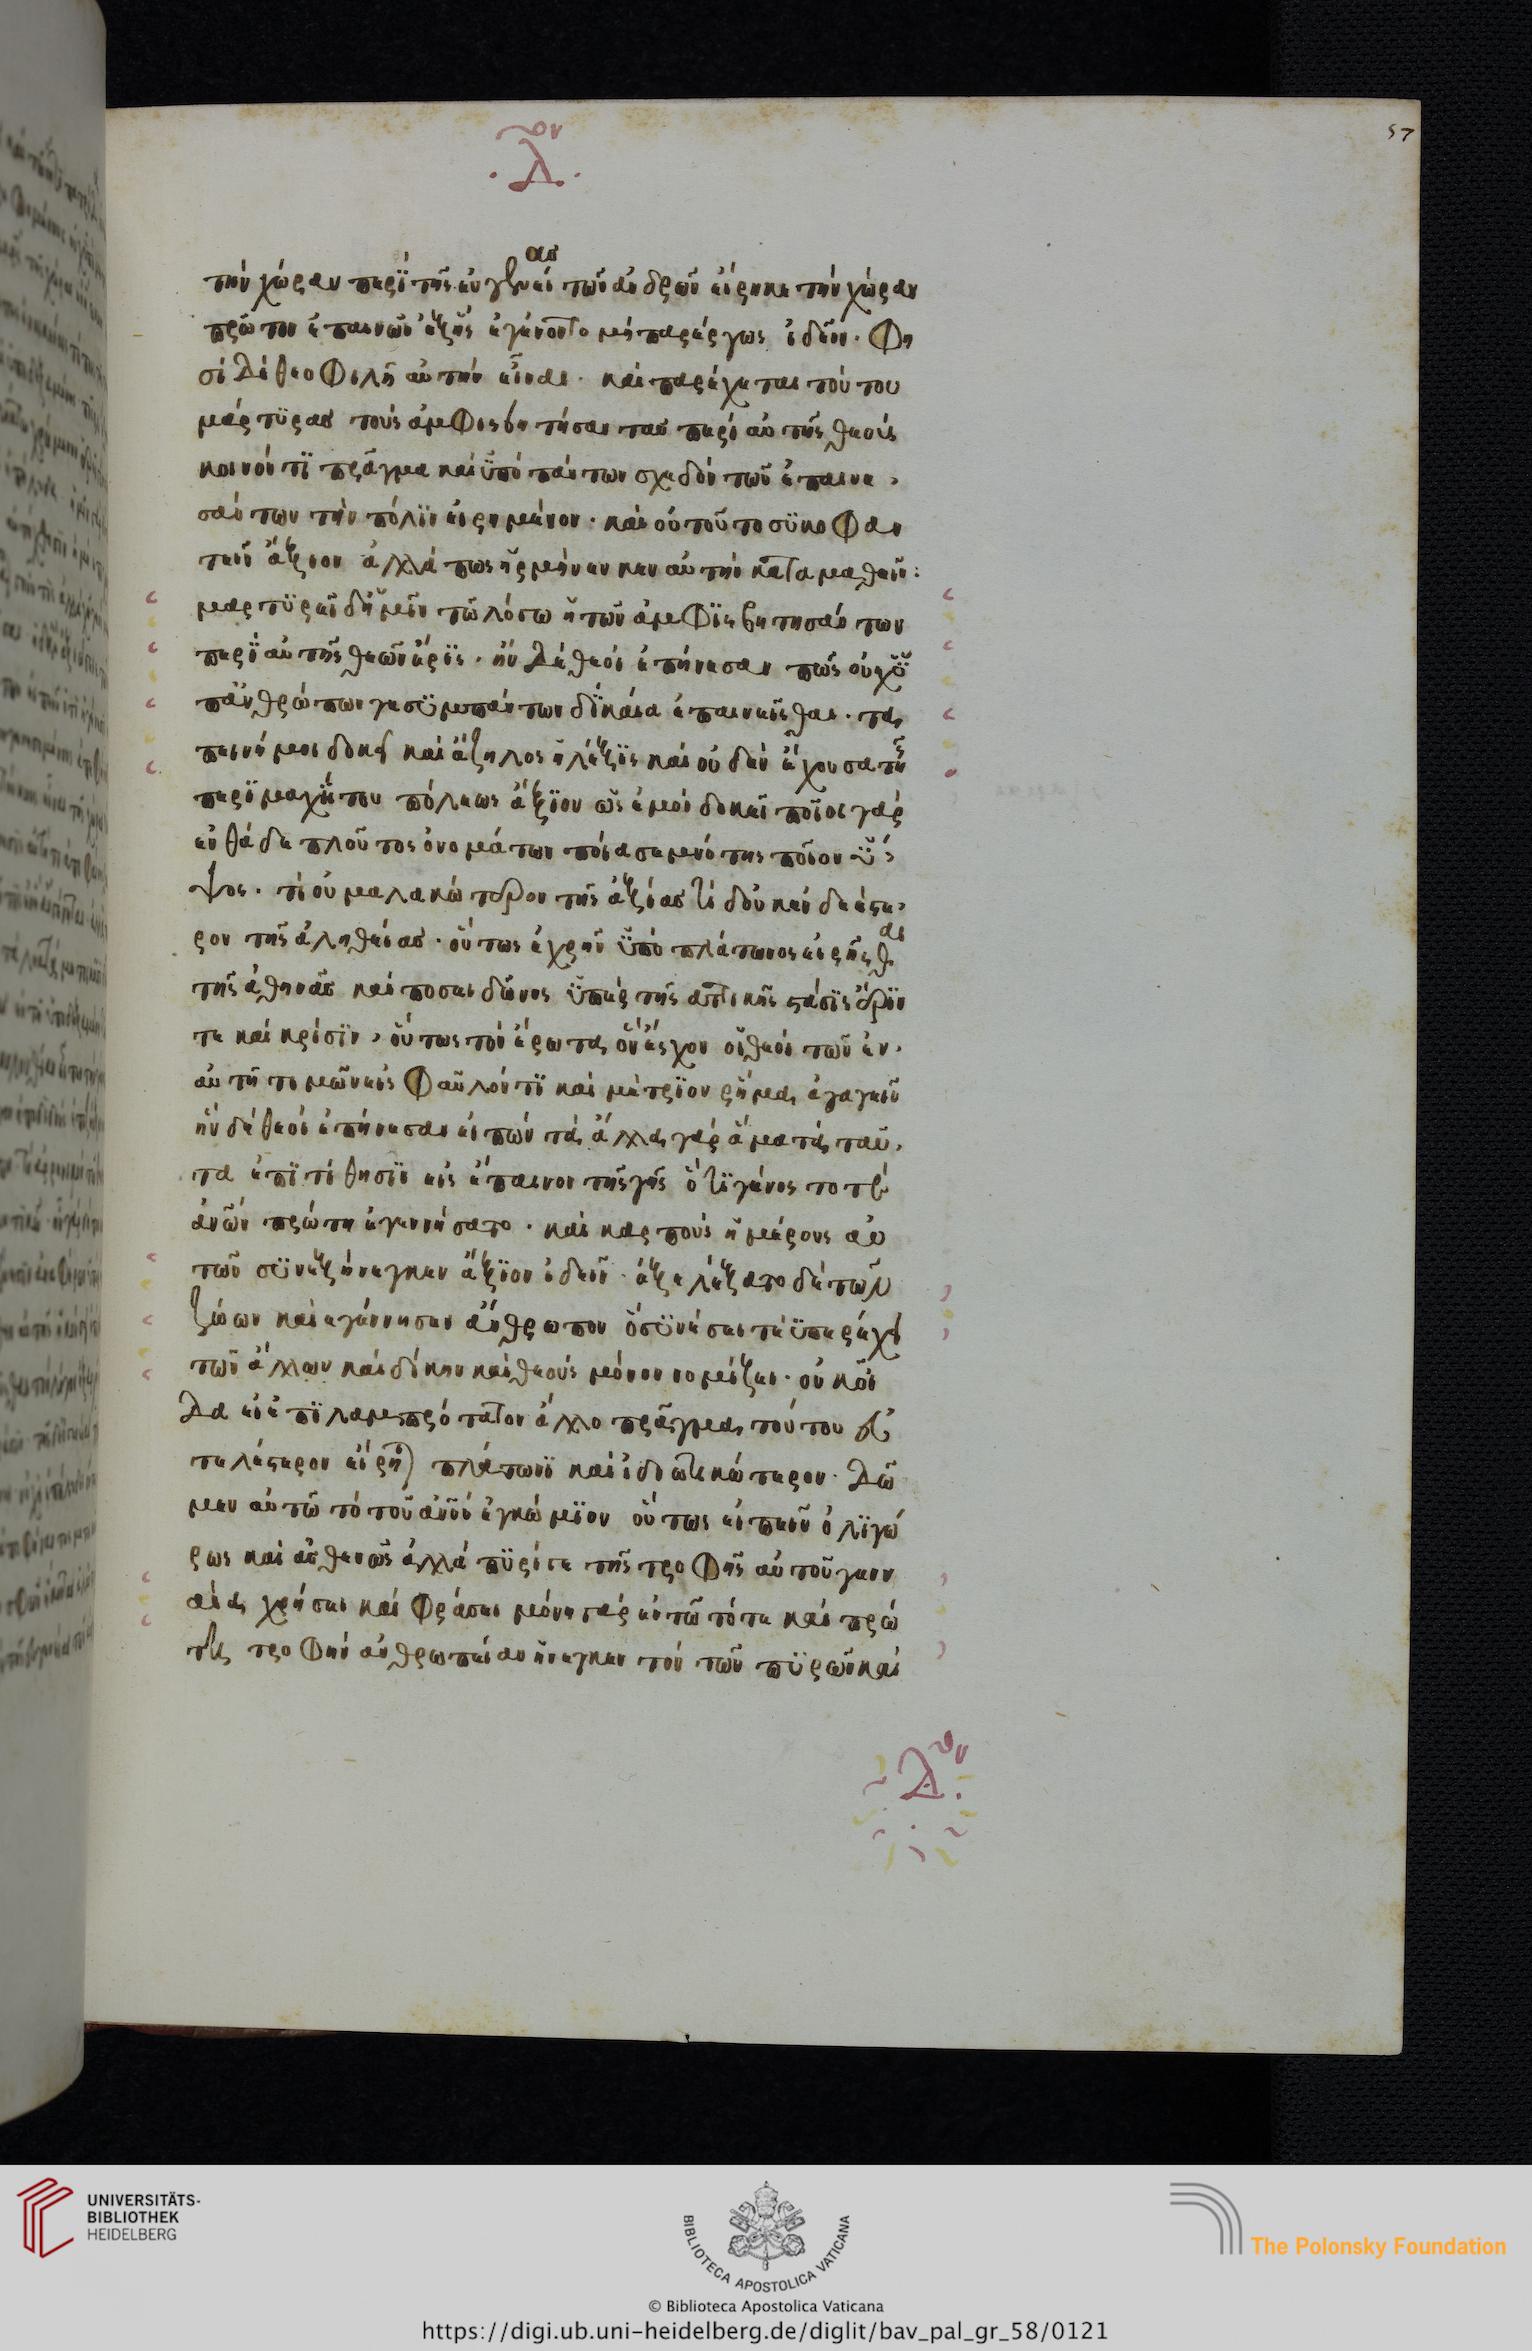 ·λ̅ον·
57
τὴν χώραν περὶ τῆς εὐγενείας τῶν ἀνδρῶν εἴρηκε τὴν χώραν
πρῶτον ἐπαινῶν ἐξ ἧς ἐγένοντο μὴ παρέργως ἰδεῖν· φη
σὶ δὲ θεοφιλῆ αὐτὴν εἶναι· καὶ παρέχεται τούτου
μάρτϋρας τοὺς ἀμφισβητήσαντας περὶ αὐτῆς θεούς
κοινόν τϊ πρᾶγμα καὶ ϋπὸ πάντων σχεδὸν τῶν ἐπαινε
σάντων τὴν πόλϊν εἰρημένον· καὶ οὐ τοῦτο σϋκοφαν
τεῖν ἄξιον ἀλλὰ πως ἡρμήνευκεν αὐτὴν καταμαθεῖν:
μαρτϋρεῖ δ ἡμῖν τῶ λόγω ἡ τῶν ἀμφϊσβητησάντων
περϊ αὐτῆς θεῶν ἔρϊς· ἣν δὲ θεοὶ ἐπήνεσαν πῶς οὐχ ϋ
π ἀνθρώπων γε σϋμπάντων δϊκαία ἐπαινεῖσθαι· τα
πεινή μοι δοκεῖ καὶ ἄζηλος ἡ λέξϊς καὶ οὐδὲν ἔχουσα τῆς
περϊμαχήτου πόλεως ἄξϊον ὡς ἐμοὶ δοκεῖ ποῖος γὰρ
ἐνθάδε πλοῦτος ὀνομάτων ποία σεμνότης ποῖον ϋ
ψος· τί οὐ μαλακώτερον τῆς ἀξίας τί δ οὐκ ἐνδεέστε
ρον τῆς ἀληθείας· οὕτως ἐχρῆν ϋπὸ πλάτωνος εἰρῆσθαι
τῆς ἀθηνᾶς καὶ ποσειδῶνος ϋπὲρ τῆς ἀττικῆς στάσϊς ἔρϊν
τε καὶ κρίσϊν· οὕτως τὸν ἔρωτα ὃν ἔσχον οἱ θεοὶ τῶν ἐν
αὐτῆ τιμῶν εἰς φαῦλόν τϊ καὶ μέτρϊον ῥῆμα ἀγαγεῖν
ἣν δὲ θεοὶ ἐπήνεσαν εἰπὼν τά ἄλλα γὰρ ἃ μετὰ ταῦ
τα ἐπϊτίθησϊν εἰς ἔπαινον τῆς γῆς ὅτϊ γένος το τ
ἀνῶν πρώτη ἐγεννήσατο· καὶ καρποὺς ἡμέρους αὐ
τῶν σϋνεξήνεγκεν ἄξϊον ἰδεῖν· ἐξελέξατο δὲ τῶν
ζώων καὶ ἐγέννησεν ἄνθρωπον ὃ σϋνέσει τὲ ϋπερέχει
τῶν ἄλλων καὶ δίκην καὶ θεοὺς μόνον νομίζει· οὐκ οἶ
δα εἰ ἐπϊ λαμπρότατον ἄλλο πρᾶγμα τούτου εὐ
τελέστερον εἴρηται πλάτωνϊ καὶ ἰδιωτικώτερον· δῶ
μεν αὐτῶ τὸ τοῦ ἀνοῦ ἐγκώμϊον οὕτως εἰπεῖν ὀλϊγώ
ρως καὶ ἀσθενῶς ἀλλὰ πϋρί τε τῆς τροφῆς αὐτοῦ γενν
αία χρήσει καὶ φράσει μόνη γὰρ ἐν τῶ τότε καὶ πρώ
τη τροφὴν ἀνθρωπείαν ἤνεγκεν τὸν τῶν πϋρῶν καὶ
λ̅ον·
UNIVERSITÄTS-
BIBLIOTHEK
HEIDELBERG
BIBLIOTECA APOSTOLICA VATICANA
The Polonsky Foundation
© Biblioteca Apostolica Vaticana
https://digi.ub.uni-heidelberg.de/diglit/bav_pal_gr_58/0121